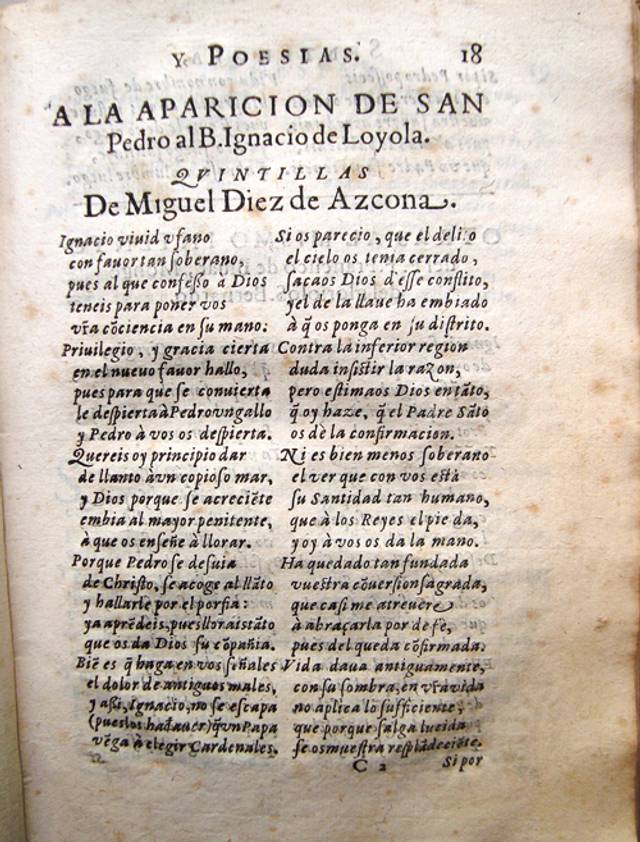 Y POESIAS. 18
A LA APARICION DE SAN
Pedro al B. Ignacio de Loyola.
QVINTILLAS
De Miguel Diez de Azcona.
Ignacio viuid vfano
con fauor tan soberano,
pues al que confeßo à Dios
teneis para poner vos
vr̃a cõciencia en su mano:
Priuilegio, y gracia cierta
en el nueuo fauor hallo,
pues para que se conuierta
le despierta à Pedro vn gallo
y Pedro à vos os despierta.
Quereis oy principio dar
de llanto à vn copioso mar,
y Dios porque se acreciẽte
embia al mayor penitente,
à que os enseñe à llorar.
Porque Pedro se desuia
de Christo, se acoge al llãto
y hallarle por el porfia:
ya aprẽdeis, pues llorais tãto
que os da Dios su cõpañia.
Biẽ es q̃ haga en vos señales
el dolor de antiguos males,
y aßi, Ignacio, no se escapa
(pues los ha d auer) q̃ vn Papa
vẽga à elegir Cardenales.
Si os parecio, que el delito
el cielo os tenia cerrado,
sacaos Dios d'esse conflito,
y el de la llaue ha embiado
à q̃ os ponga en su distrito.
Contra la inferior region
duda insistir la razon,
pero estimaos Dios en tãto,
q̃ oy haze, q̃ el Padre Sãto
os dè la confirmacion.
Ni es bien menos soberano
el ver que con vos està
su Santidad tan humano,
que à los Reyes el pie da,
y oy à vos os da la mano.
Ha quedado tan fundada
vuestra cõuersion sagrada,
que casi me atreuere
à abraçarla por de fe,
pues del queda cõfirmada.
Vida daua antiguamente,
con su sombra, en vr̃a vida
no aplica lo sufficiente,
que porque salga luzida
se os muestra resplãdeciẽte.
C 2 Si por